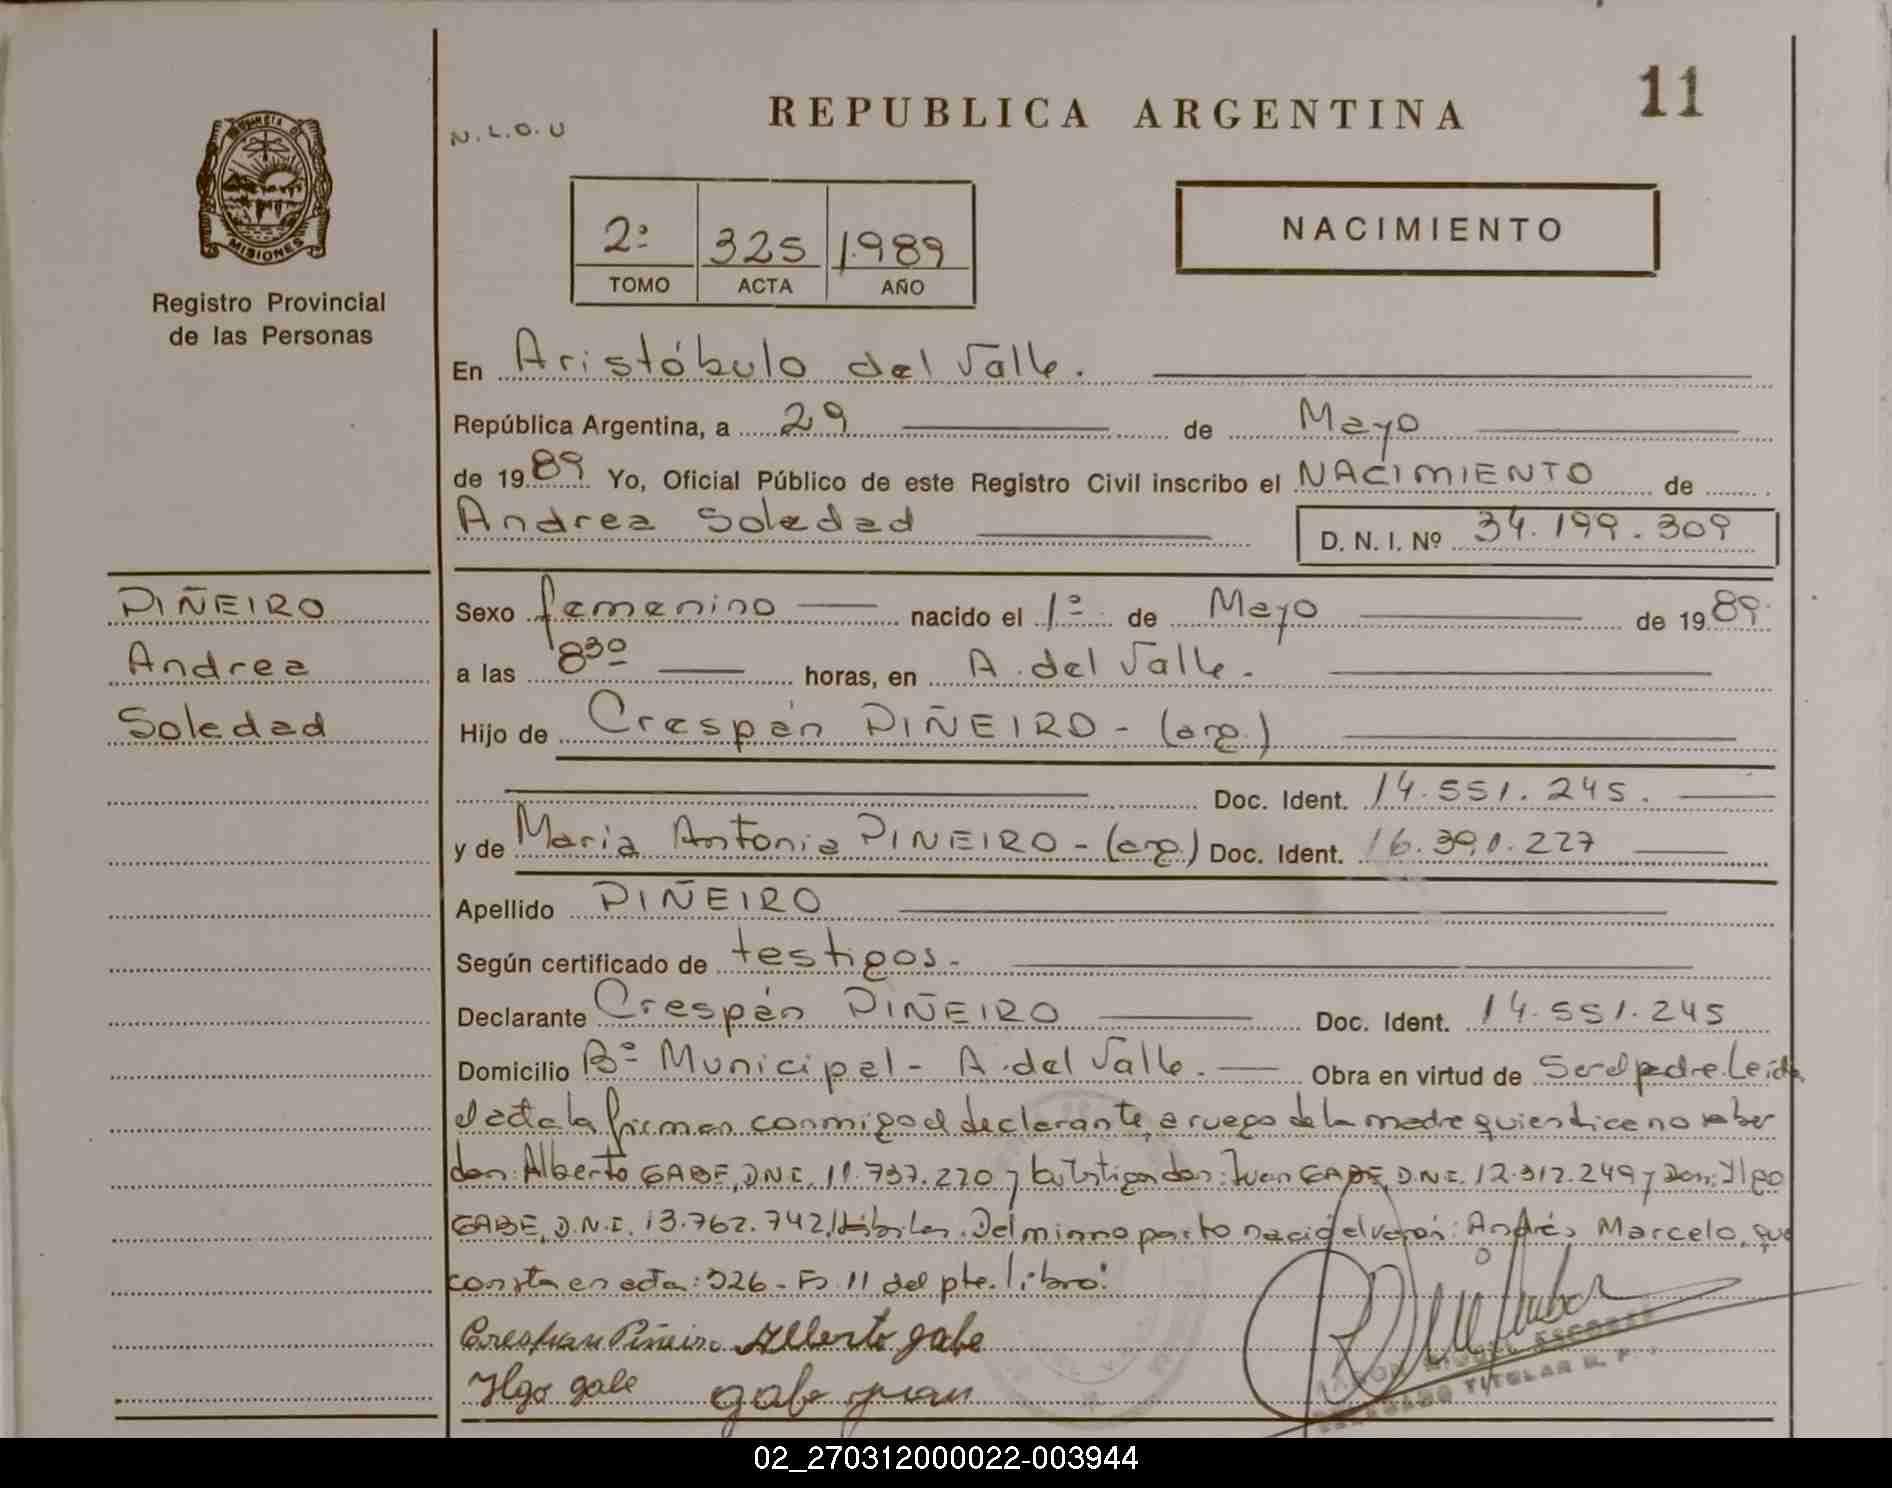 11
REPUBLICA ARGENTINA
N.L.O.U
PROVINCIA DE
MISIONES
Registro Provincial
de las Personas
2º 325 1.989
TOMO ACTA AÑO
NACIMIENTO
En Aristóbulo del Valle.
República Argentina, a 29 de Mayo
de 1989 Yo, Oficial Público de este Registro Civil inscribo el NACIMIENTO de
Andrea Soledad D. N. I. Nº 34.199.309
PIÑEIRO
Andrea
Soledad
Sexo femenino nacido el 1º de Mayo de 1989.
a las 8³⁰ horas, en A. del Valle.
Hijo de Crespán PIÑEIRO - (arg.)
Doc. Ident. 14.551.245.
y de Maria Antonia PINEIRO - (arg.) Doc. Ident. 16.390.227
Apellido PIÑEIRO
Según certificado de testigos.
Declarante Crespán PIÑEIRO Doc. Ident. 14.551.245
Domicilio Bº Municipal - A. del Valle. Obra en virtud de Ser el padre. Leida
el acta la firman conmigo el declarante, a ruego de la madre quien dice no saber
don: Alberto GABE, D.N.I. 11.737.220 y los testigos don: Juan GABE, D.N.I. 12.312.249 y Don: Ilgo
GABE, D.N.I. 13.762.742, hábiles. Del mismo parto nació el varón: Andrés Marcelo, que
consta en acta: 326 - Fº 11 del pte. libro.
Crespan Piñeiro Alberto gabe
Ilgo gabe gabe juan
MIGUEL ESCOBAR
DELEGADO TITULAR R. P.
02_270312000022-003944